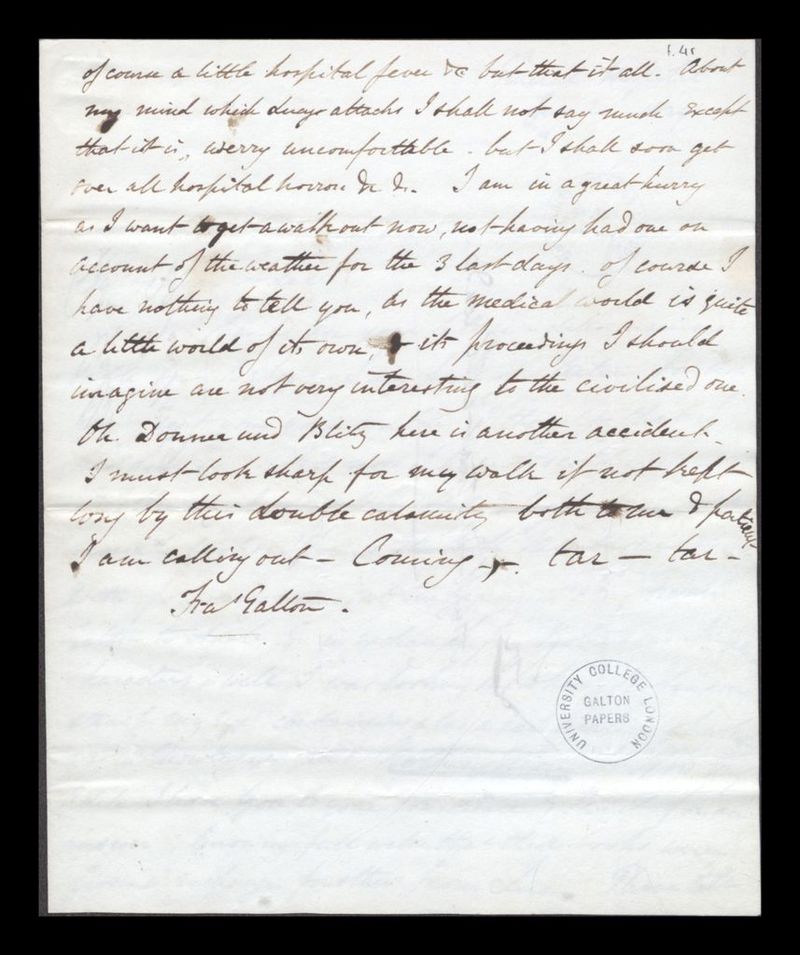 f. 4r
of course a little hospital fever &c but that is all. About
my mind which always attacks I shall not say much except
that it is, werry uncomfortable. but I shall soon get
over all hospital horrors &c &c. I am in a great hurry
as I want to get a walk out now, not having had one on
account of the weather for the 3 last days. Of course I
have nothing to tell you, as the medical world is quite
a little world of its own, & its proceedings I should
imagine are not very interesting to the civilised one.
Oh Donner und Blitz here is another accident.
I must look sharp for my walk if not kept
long by this double calamity both to me & patient
I am calling out – Coming –. tar – tar –
Fras Galton.
UNIVERSITY COLLEGE LONDON
GALTON
PAPERS